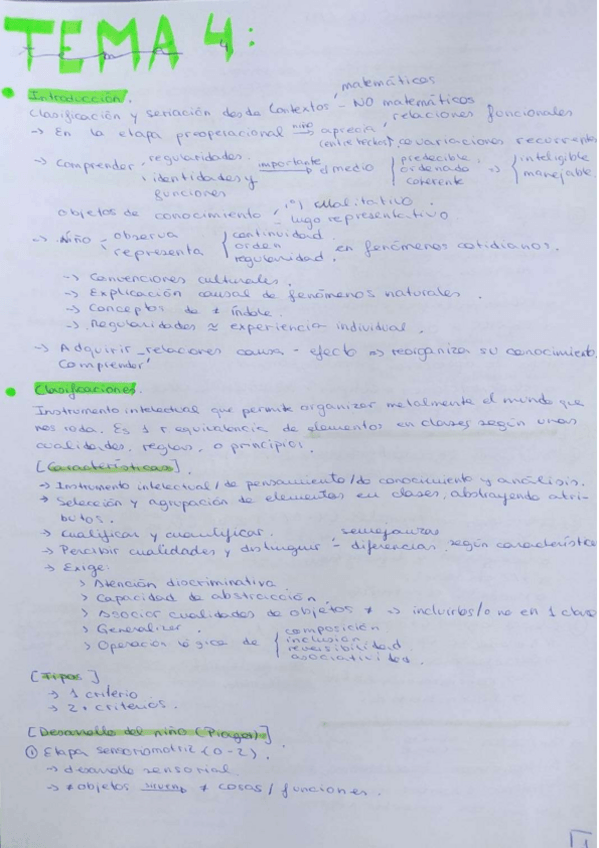 TEMA 4:
tema 4
Introducción.
Clasificación y seriación desde contextos - matemáticos
- NO matemáticos
→ En la etapa preoperacional niño aprecia relaciones funcionales
(entre hechos), covariaciones recurrentes
→ Comprender · regularidades. importante el medio { predecible, ordenado, coherente ⇒ { inteligible manejable.
· identidades y
funciones
objetos de conocimiento 1º) cualitativo.
- luego representativo
→ Niño - observa { continuidad
- representa { orden en fenómenos cotidianos.
regularidad.
→ Convenciones culturales.
→ Explicación causal de fenómenos naturales.
→ Conceptos de ≠ índole.
→ Regularidades ≈ experiencia individual.
→ Adquirir relaciones causa - efecto ⇒ reorganiza su conocimiento.
Comprender
Clasificaciones.
Instrumento intelectual que permite organizar metalmente el mundo que
nos roda. Es 1 r equivalencia de elementos en clases según unas
cualidades, reglas, o principios.
[Características].
→ Instrumento intelectual / de pensamiento / de conocimiento y análisis.
→ Selección y agrupación de elementos en clases, abstrayendo atri-
butos.
→ Cualificar y cuantificar.
→ Percibir cualidades y distinguir - semejanzas
- diferencias según característica
→ Exige:
> Atención discriminativa
> Capacidad de abstracción.
> Asociar cualidades de objetos ≠ ⇒ incluirlos/o no en 1 clase
> Generalizar.
> Operación lógica de { composición
inclusión
reversibilidad
asociatividad.
[Tipos]
→ 1 criterio
→ 2 + criterios.
[Desarrollo del niño (Piaget)].
① Etapa sensoriomotriz (0-2).
→ desarrollo sensorial.
→ ≠ objetos sirven ≠ cosas / funciones.
1